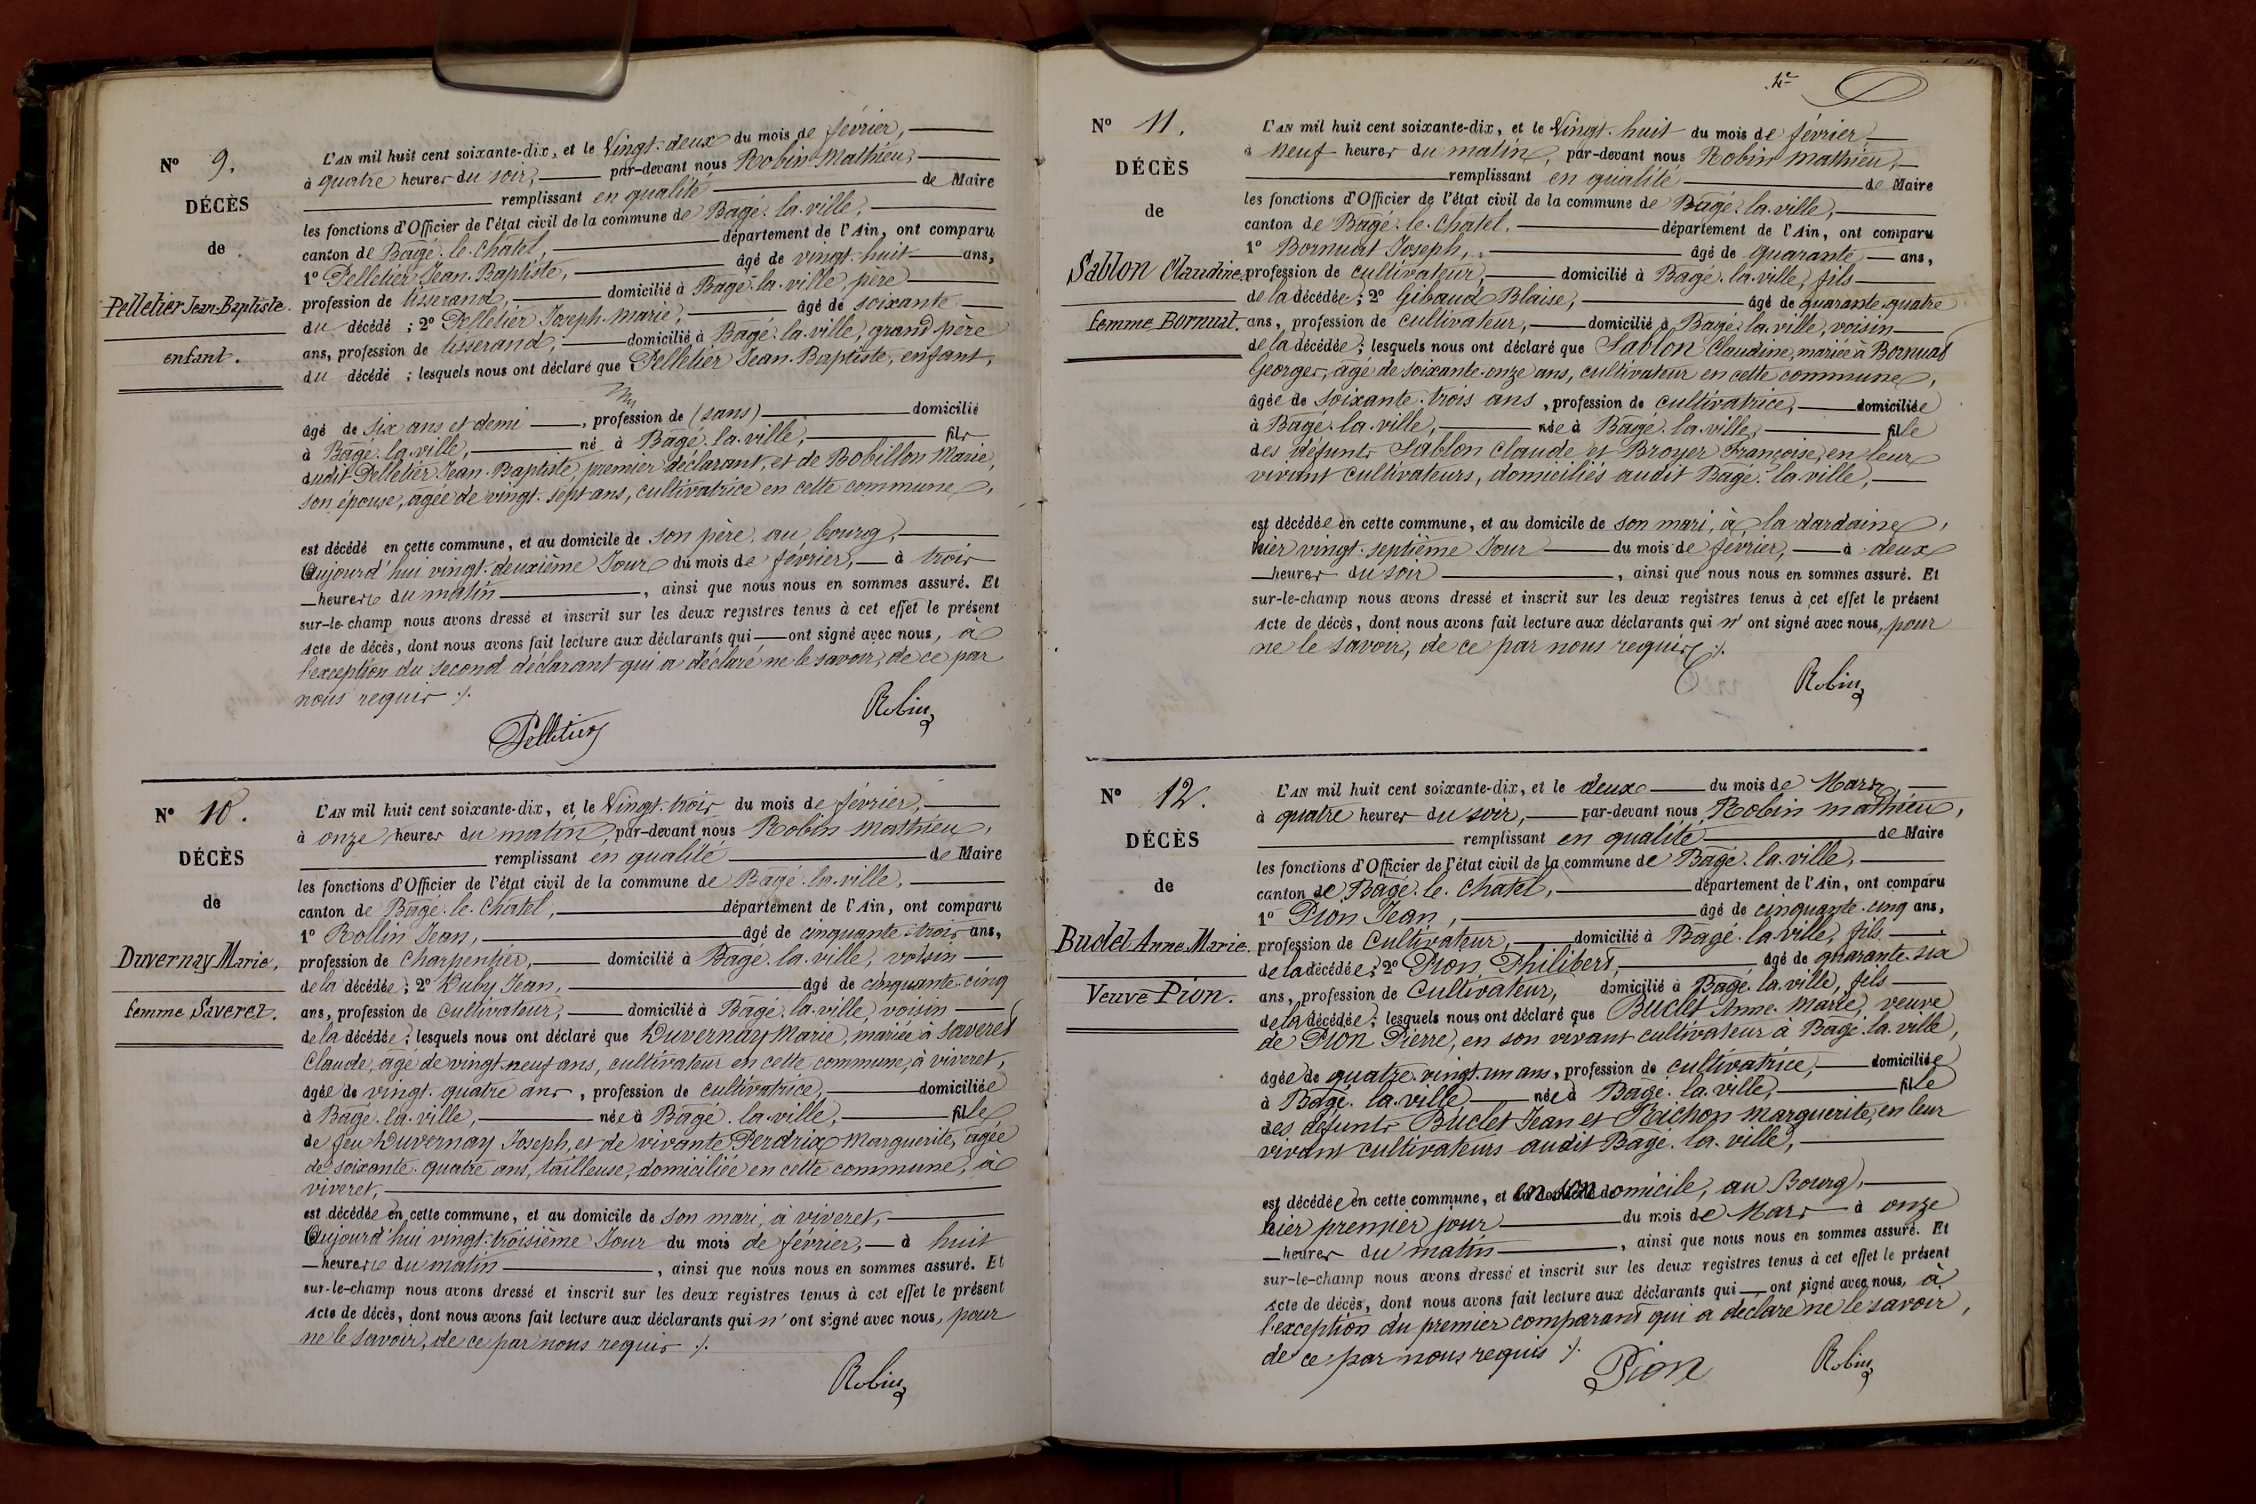 Nº 9.
DÉCÈS
de
Pelletier Jean-Baptiste.
enfant.
L'AN mil huit cent soixante-dix, et le Vingt-deux du mois de février,
à quatre heures du soir, par-devant nous Robin Mathieu,
remplissant en qualité de Maire
les fonctions d'Officier de l'état civil de la commune de Bagé-la-ville,
canton de Bagé-le-Chatel, département de l'Ain, ont comparu
1º Pelletier Jean-Baptiste, âgé de vingt-huit ans,
profession de tisserand, domicilié à Bagé-la-ville, père
du décédé ; 2º Pelletier Joseph-Marie, âgé de soixante
ans, profession de tisserand, domicilié à Bagé-la-ville, grand père
du décédé ; lesquels nous ont déclaré que Pelletier Jean-Baptiste, enfant,
âgé de six ans et demi, profession de (sans) domicilié
à Bagé-la-ville, né à Bagé-la-ville, fils
dudit Pelletier Jean-Baptiste, premier déclarant, et de Robillon Marie,
son épouse, agée de vingt-sept ans, cultivatrice en cette commune,
est décédé en cette commune, et au domicile de son père, au bourg,
Aujourd'hui vingt-deuxième Jour du mois de février, à trois
heures du matin, ainsi que nous nous en sommes assuré. Et
sur-le-champ nous avons dressé et inscrit sur les deux registres tenus à cet effet le présent
Acte de décès, dont nous avons fait lecture aux déclarants qui ont signé avec nous, à
l'exception du second déclarant qui a déclaré ne le savoir, de ce par
nous requis ./.
Robin
Pelletier
Nº 10.
DÉCÈS
de
Duvernay Marie,
femme Saveret.
L'AN mil huit cent soixante-dix, et le Vingt-trois du mois de février,
à onze heures du matin, par-devant nous Robin Mathieu,
remplissant en qualité de Maire
les fonctions d'Officier de l'état civil de la commune de Bagé-la-ville,
canton de Bagé-le-Chatel, département de l'Ain, ont comparu
1º Rollin Jean, âgé de cinquante-trois ans,
profession de Charpentier, domicilié à Bagé-la-ville, voisin
de la décédée ; 2º Duby Jean, âgé de cinquante-cinq
ans, profession de cultivateur, domicilié à Bagé-la-ville, voisin
de la décédée ; lesquels nous ont déclaré que Duvernay Marie, mariée à Saveret
Claude, agé de vingt-neuf ans, cultivateur en cette commune, à viveret,
âgée de vingt-quatre ans, profession de cultivatrice, domiciliée
à Bagé-la-ville, née à Bagé-la-ville, fille
de feu Duvernay Joseph, et de vivante Perdrix Marguerite, agée
de soixante-quatre ans, tailleuse, domiciliée en cette commune, à
viveret,
est décédée en cette commune, et au domicile de son mari, à viveret,
Aujourd'hui vingt-troisième Jour du mois de février, à huit
heures du matin, ainsi que nous nous en sommes assuré. Et
sur-le-champ nous avons dressé et inscrit sur les deux registres tenus à cet effet le présent
Acte de décès, dont nous avons fait lecture aux déclarants qui n'ont signé avec nous, pour
ne le savoir, de ce par nous requis ./.
Robin
Nº 11.
DÉCÈS
de
Sablon Claudine,
femme Bornuat.
L'AN mil huit cent soixante-dix, et le Vingt-huit du mois de février,
à neuf heures du matin, par-devant nous Robin Mathieu,
remplissant en qualité de Maire
les fonctions d'Officier de l'état civil de la commune de Bagé-la-ville,
canton de Bagé-le-Chatel. département de l'Ain, ont comparu
1º Bornuat Joseph, âgé de quarante ans,
profession de cultivateur, domicilié à Bagé-la-ville, fils
de la décédée ; 2º Gibaud Blaise, âgé de quarante-quatre
ans, profession de cultivateur, domicilié à Bagé-la-ville, voisin
de la décédée ; lesquels nous ont déclaré que Sablon Claudine, mariée à Bornuat
Georges, agé de soixante-onze ans, cultivateur en cette commune,
âgée de soixante-trois ans, profession de cultivatrice, domiciliée
à Bagé-la-ville, née à Bagé-la-ville, fille
des défunts Sablon Claude et Broyer Françoise, en leur
vivant cultivateurs, domiciliés audit Bagé-la-ville,
est décédée en cette commune, et au domicile de son mari, à la dardaine,
hier vingt-septième Jour du mois de février, à deux
heures du soir, ainsi que nous nous en sommes assuré. Et
sur-le-champ nous avons dressé et inscrit sur les deux registres tenus à cet effet le présent
Acte de décès, dont nous avons fait lecture aux déclarants qui n'ont signé avec nous, pour
ne le savoir, de ce par nous requis ./.
Robin
Nº 12.
DÉCÈS
de
Buclet Anne-Marie.
Veuve Pion.
L'AN mil huit cent soixante-dix, et le deux du mois de Mars,
à quatre heures du soir, par-devant nous Robin Mathieu,
remplissant en qualité de Maire
les fonctions d'Officier de l'état civil de la commune de Bagé-la-ville,
canton de Bagé-le-Chatel, département de l'Ain, ont comparu
1º Pion Jean, âgé de cinquante-cinq ans,
profession de Cultivateur, domicilié à Bagé-la-ville, fils
de la décédée ; 2º Pion Philibert, âgé de quarante-six
ans, profession de Cultivateur, domicilié à Bagé-la-ville, fils
de la décédée ; lesquels nous ont déclaré que Buclet Anne-Marie, veuve
de Pion Pierre, en son vivant cultivateur à Bagé-la-ville,
âgée de quatre-vingt-un ans, profession de cultivatrice, domiciliée
à Bagé-la-ville née à Bagé-la-ville, fille
des défunts Buclet Jean et Traichon Marguerite, en leur
vivant cultivateurs audit Bagé-la-ville,
est décédée en cette commune, et en son domicile, au Bourg,
hier premier jour du mois de Mars à onze
heures du matin, ainsi que nous nous en sommes assuré. Et
sur-le-champ nous avons dressé et inscrit sur les deux registres tenus à cet effet le présent
Acte de décès, dont nous avons fait lecture aux déclarants qui ont signé avec nous, à
l'exception du premier comparant qui a déclaré ne le savoir,
de ce par nous requis ./.
Pion
Robin